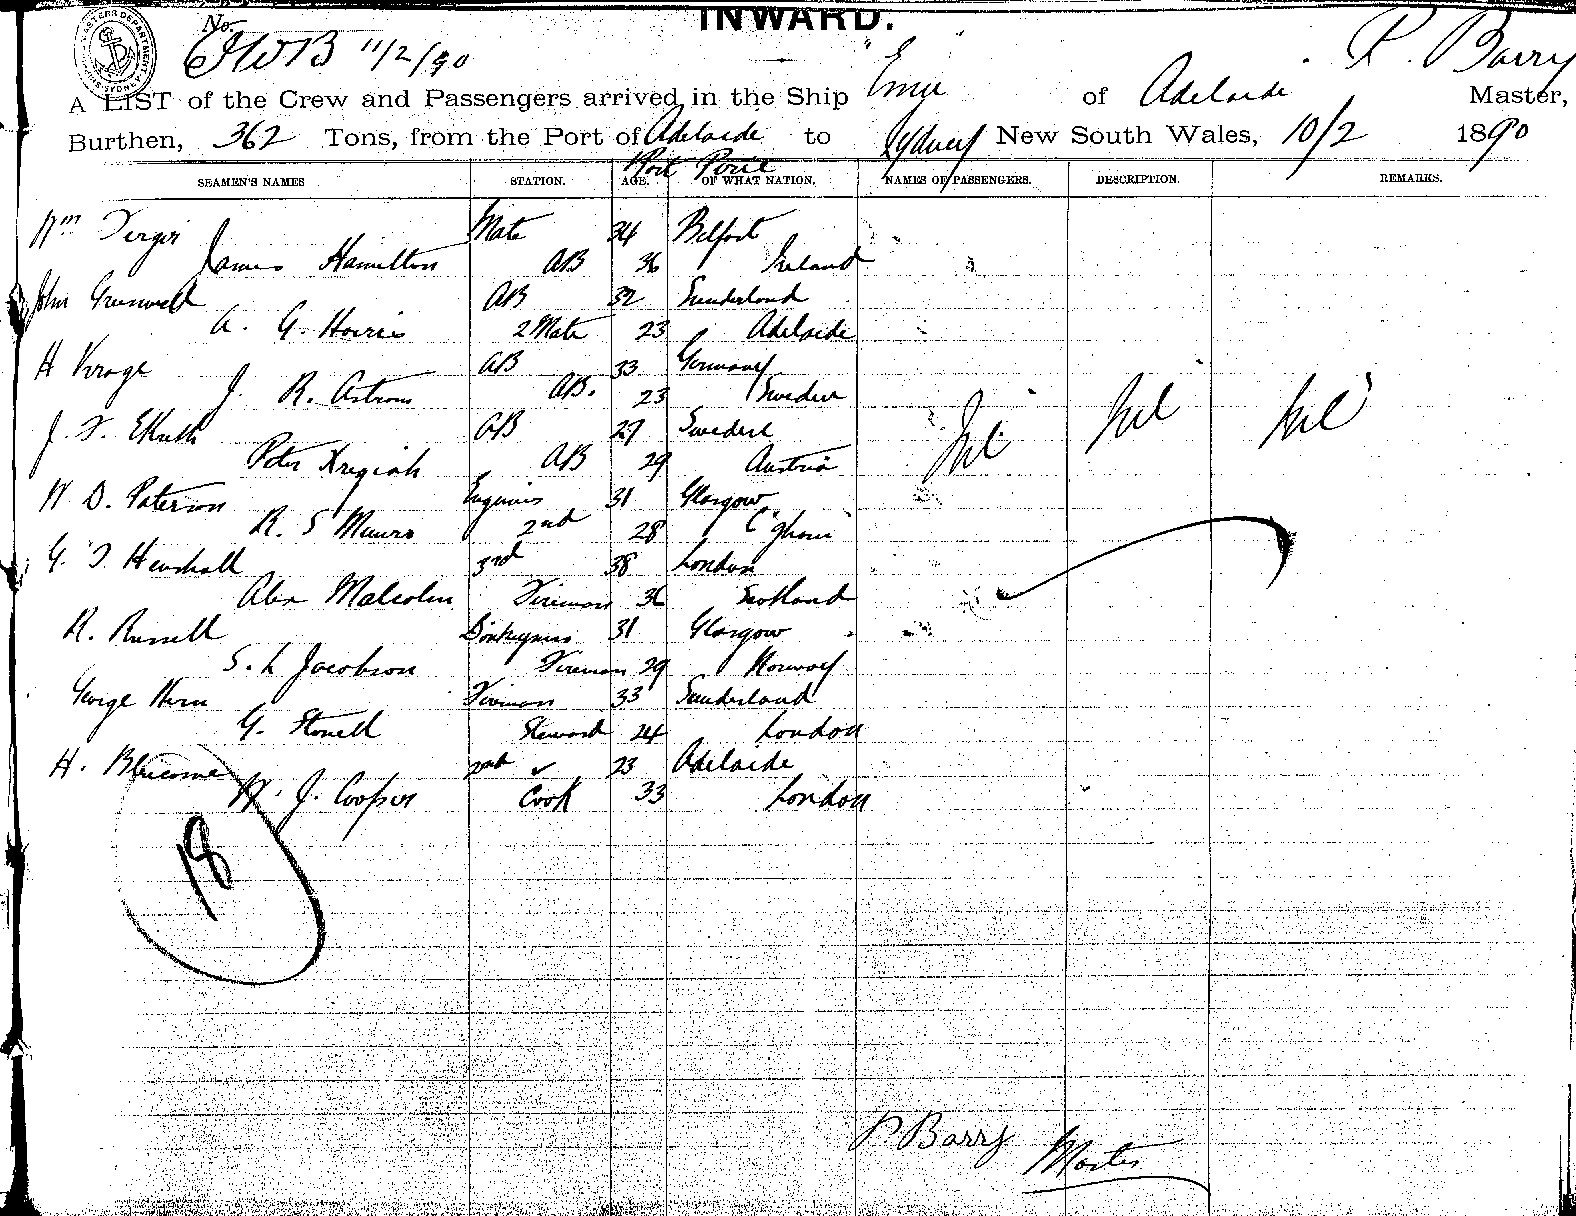 INWARD.
No.
11/2/90
"Emu" Adelaide P. Barry
A LIST of the Crew and Passengers arrived in the Ship of Master,
Burthen, 362 Tons, from the Port of Adelaide to Sydney New South Wales, 10/2 1890
Port Pirie
SEAMEN'S NAMES STATION. AGE. OF WHAT NATION. NAMES OF PASSENGERS. DESCRIPTION. REMARKS.
Wm Mate 34 Belfast
James Hamilton AB 36 Ireland
John AB 32 Sunderland
A. G. Harris 2 Mate 23 Adelaide
H AB 33 Germany
J. R. Astrom AB. 23 Sweden
J. F. AB 27 Sweden
Nil Nil Nil
Peter AB 29 Austria
W. D. Paterson Engineer 31 Glasgow
R. S Munro 2nd 28
G. T. Henshall 3rd 38 London
Alex Malcolm Fireman 36 Scotland
R. Russell Donkeyman 31 Glasgow
S. L Jacobson Fireman 29 Norway
George Fireman 33 Sunderland
G. Stonell Steward 24 London
H. 2nd 23 Adelaide
W. J. Cooper Cook 33 London
18
P Barry
Master